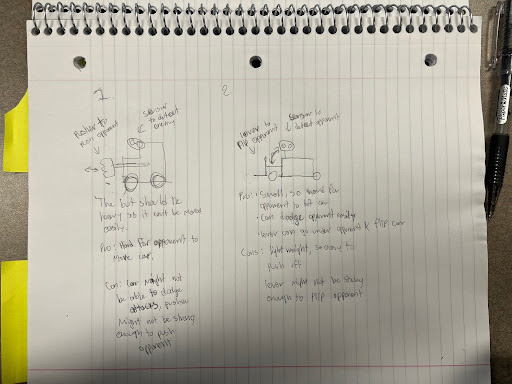 1
Pusher to
push opponent
sensor
to detect
enemy
The bot should be
heavy so it can't be moved
easily.
Pro: Hard for opponent to
move car.
Con: Car might not
be able to dodge
attacks, pusher
Might not be strong
enough to push
opponent
2
lever to
flip opponent
Sensor to
detect opponent
Pro: • Small, so hard for
opponent to hit car
• Can dodge opponent easily
• lever can go under opponent & flip car
Cons: light weight, so easy to
push off
lever might not be strong
enough to flip opponent